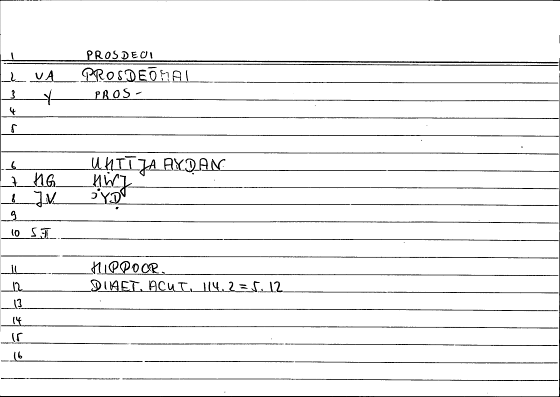 1 PROSDEOI
2 VA PROSDEŌMAI
3 Y PROS-
4
5
6 UḤTĪJA AYḌAN
7 ḤG ḤWJ
8 JV ʾYḌ
9
10 S.
11 HIPPOCR.
12 DIAET. ACUT. 114.2 = 5.12
13
14
15
16